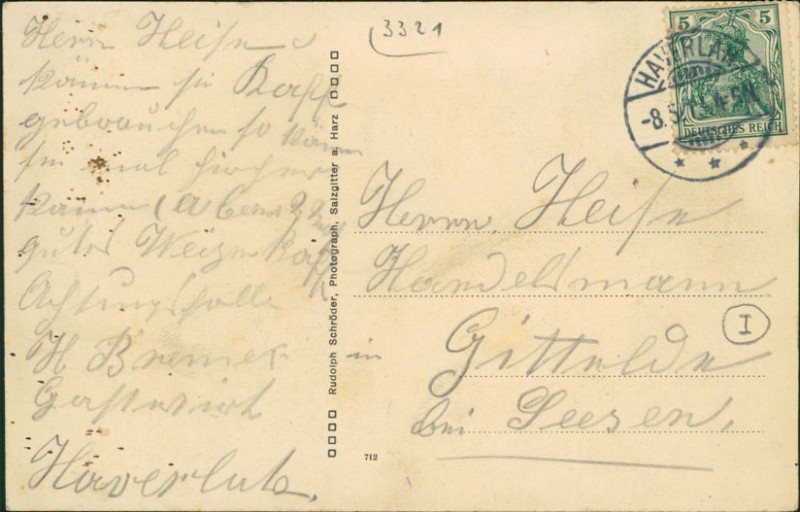 Herrn Heise
können sie Kaff
gebrauchen so können
sie mal hierher
kommen
gutes Weizenkaff
Achtungsvolle
H Bremer
Gastwirt
Haverlah.
Rudolph Schröder, Photograph, Salzgitter a. Harz
712
3321
5 5
HAVERLAH
-8.5. 4-5N
DEUTSCHES REICH
Herrn Heise
Handelsmann
I
in Gittelde
bei Seesen.